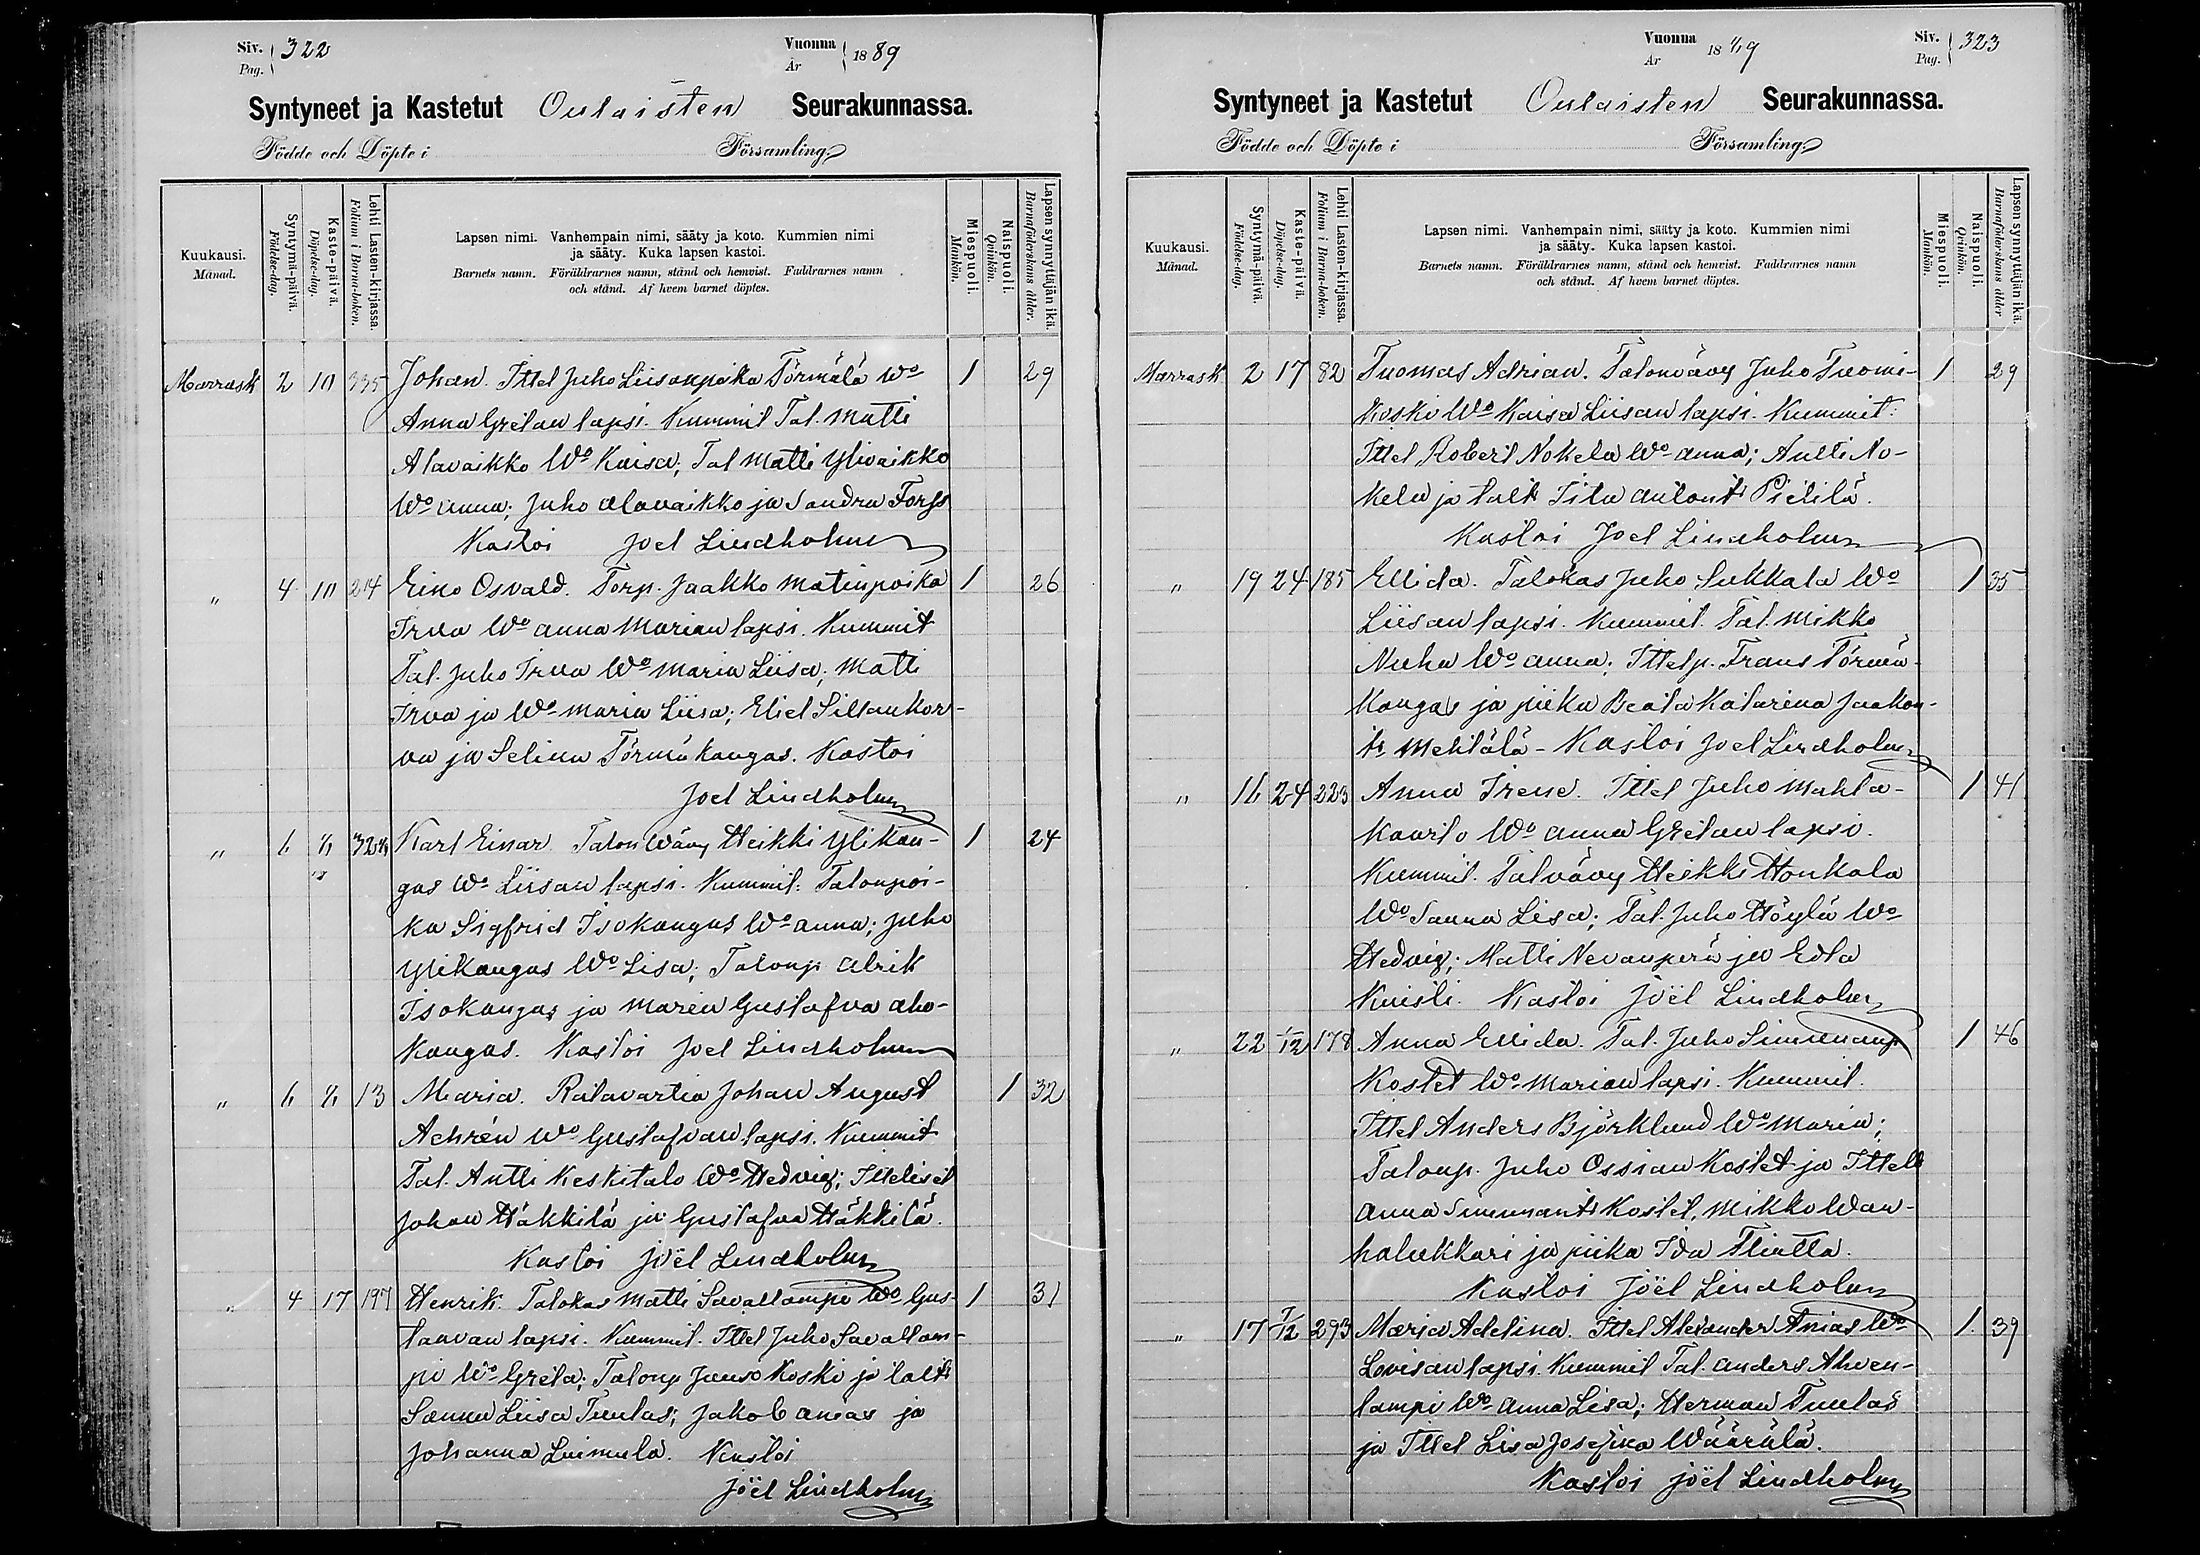 Siv. 322
Pag.
Vuonna 1889
År
Syntyneet ja Kastetut Oulaisten Seurakunnassa.
Födde och Döpte i Församling.
Kuukausi.
Månad.
Syntymä-päivä.
Födelse-dag.
Kaste-päivä.
Döpelse-dag.
Lehti Lasten-kirjassa.
Folium i Barna-boken.
Lapsen nimi. Vanhempain nimi, sääty ja koto. Kummien nimi
ja sääty. Kuka lapsen kastoi.
Barnets namn. Föräldrarnes namn, stånd och hemvist. Faddrarnes namn
och stånd. Af hvem barnet döptes.
Miespuoli.
Mankön.
Naispuoli.
Qvinkön.
Lapsen synnyttäjän ikä.
Barnaföderskans ålder.
Marrask 2 10 335 Johan. Ittel Juho Liisanpoika Törmälä Wo 1 29
Anna Gretan lapsi. Kummit Tal. Matti
Alavaikko Wo Kaisa; Tal Matti Ylivaikko
Wo Anna; Juho Alavaikko ja Sandra Forss
Kastoi Joel Lindholm
" 4 10 214 Eino Osvald. Torp. Jaakko Matinpoika 1 26
Irva Wo Anna Marian lapsi. Kummit
Tal. Juho Irva Wo Maria Liisa; Matti
Irva ja Wo Maria Liisa; Eliel Siltankor-
va ja Selina Törmäkangas. Kastoi
Joel Lindholm
" Karl Einar. Talon Wävy Heikki Ylikan- 1 24
gas Wo Liisan lapsi. Kummit: Talonpoi-
ka Sigfrid Isokangas Wo Anna; Juho
Ylikangas Wo Lisa; Talonp Alrik
Isokangas ja Maria Gustafva Aho-
kangas. Kastoi Joel Lindholm
" 13 Maria. Ratavartia Johan August 1 32
Achrén Wo Gustafvan lapsi. Kummit
Tal. Antti Keskitalo Wo Hedvig; Itteliset
Johan Häkkilä ja Gustafva Häkkilä.
Kastoi Joël Lindholm
" 4 17 197 Henrik. Talokas Matti Savallampi Wo Gus- 1 31
taavan lapsi. Kummit. Ittel Juho Savallam-
pi Wo Greta; Talonp Koski ja taltr
Sanna Liisa Tuulas; Jakob Anias ja
Johanna Luimula. Kastoi
Joël Lindholm
Vuonna 1889
År
Siv. 323
Pag.
Syntyneet ja Kastetut Oulaisten Seurakunnassa.
Födde och Döpte i Församling.
Kuukausi.
Månad.
Syntymä-päivä.
Födelse-dag.
Kaste-päivä.
Döpelse-dag.
Lehti Lasten-kirjassa.
Folium i Barna-boken.
Lapsen nimi. Vanhempain nimi, sääty ja koto. Kummien nimi
ja sääty. Kuka lapsen kastoi.
Barnets namn. Föräldrarnes namn, stånd och hemvist. Faddrarnes namn
och stånd. Af hvem barnet döptes.
Miespuoli.
Mankön.
Naispuoli.
Qvinkön.
Lapsen synnyttäjän ikä.
Barnaföderskans ålder
Marrask 2 17 82 Tuomas Adrian. Talonvävy Juho Tuomi- 1 29
koski Wo Kaisa Liisan lapsi. Kummit:
Ittel Robert Nokela Wo Anna; Antti No-
kela ja taltr Iita Pietilä.
Kastoi Joel Lindholm
" 19 24 185 Ellida. Talokas Juho Sakkala Wo 1 35
Liisan lapsi. Kummit. Tal. Mikko
Nieha Wo Anna; Ittelp. Frans Törmä-
kangas ja piika Beata Katarina Jaakon-
tr. Mehtälä - Kastoi Joel Lindholm
" 16 24 223 Anna Irene. Ittel Juho Mahla- 1 41
kaarto Wo Anna Gretan lapsi.
Kummit. Talvävy Heikki Honkala
Wo Sanna Lisa; Tal. Juho Höylä Wo
Hedvig; Matti Nevanperä ja Edla
Kuisti. Kastoi Joël Lindholm
" 22 1/12 178 Anna Ellida. Tal. Juho Simunanp 1 46
Kostet Wo Marian lapsi. Kummit.
Ittel Anders Björklund Wo Maria;
Talonp. Juho Ossian Kostet ja Ittell
Anna Simunantr Kostet, Mikko Wan-
halukkari ja piika Ida
Kastoi Joël Lindholm
" 17 1/12 293 Maria Adelina. Ittel Alexander Anias Wo 1 39
Lovisan lapsi. Kummit Tal. Anders Ahven-
lampi Wo Anna Lisa; Herman Tuulas
ja Ittel Lisa Josefina Wäärälä.
Kastoi Joël Lindholm